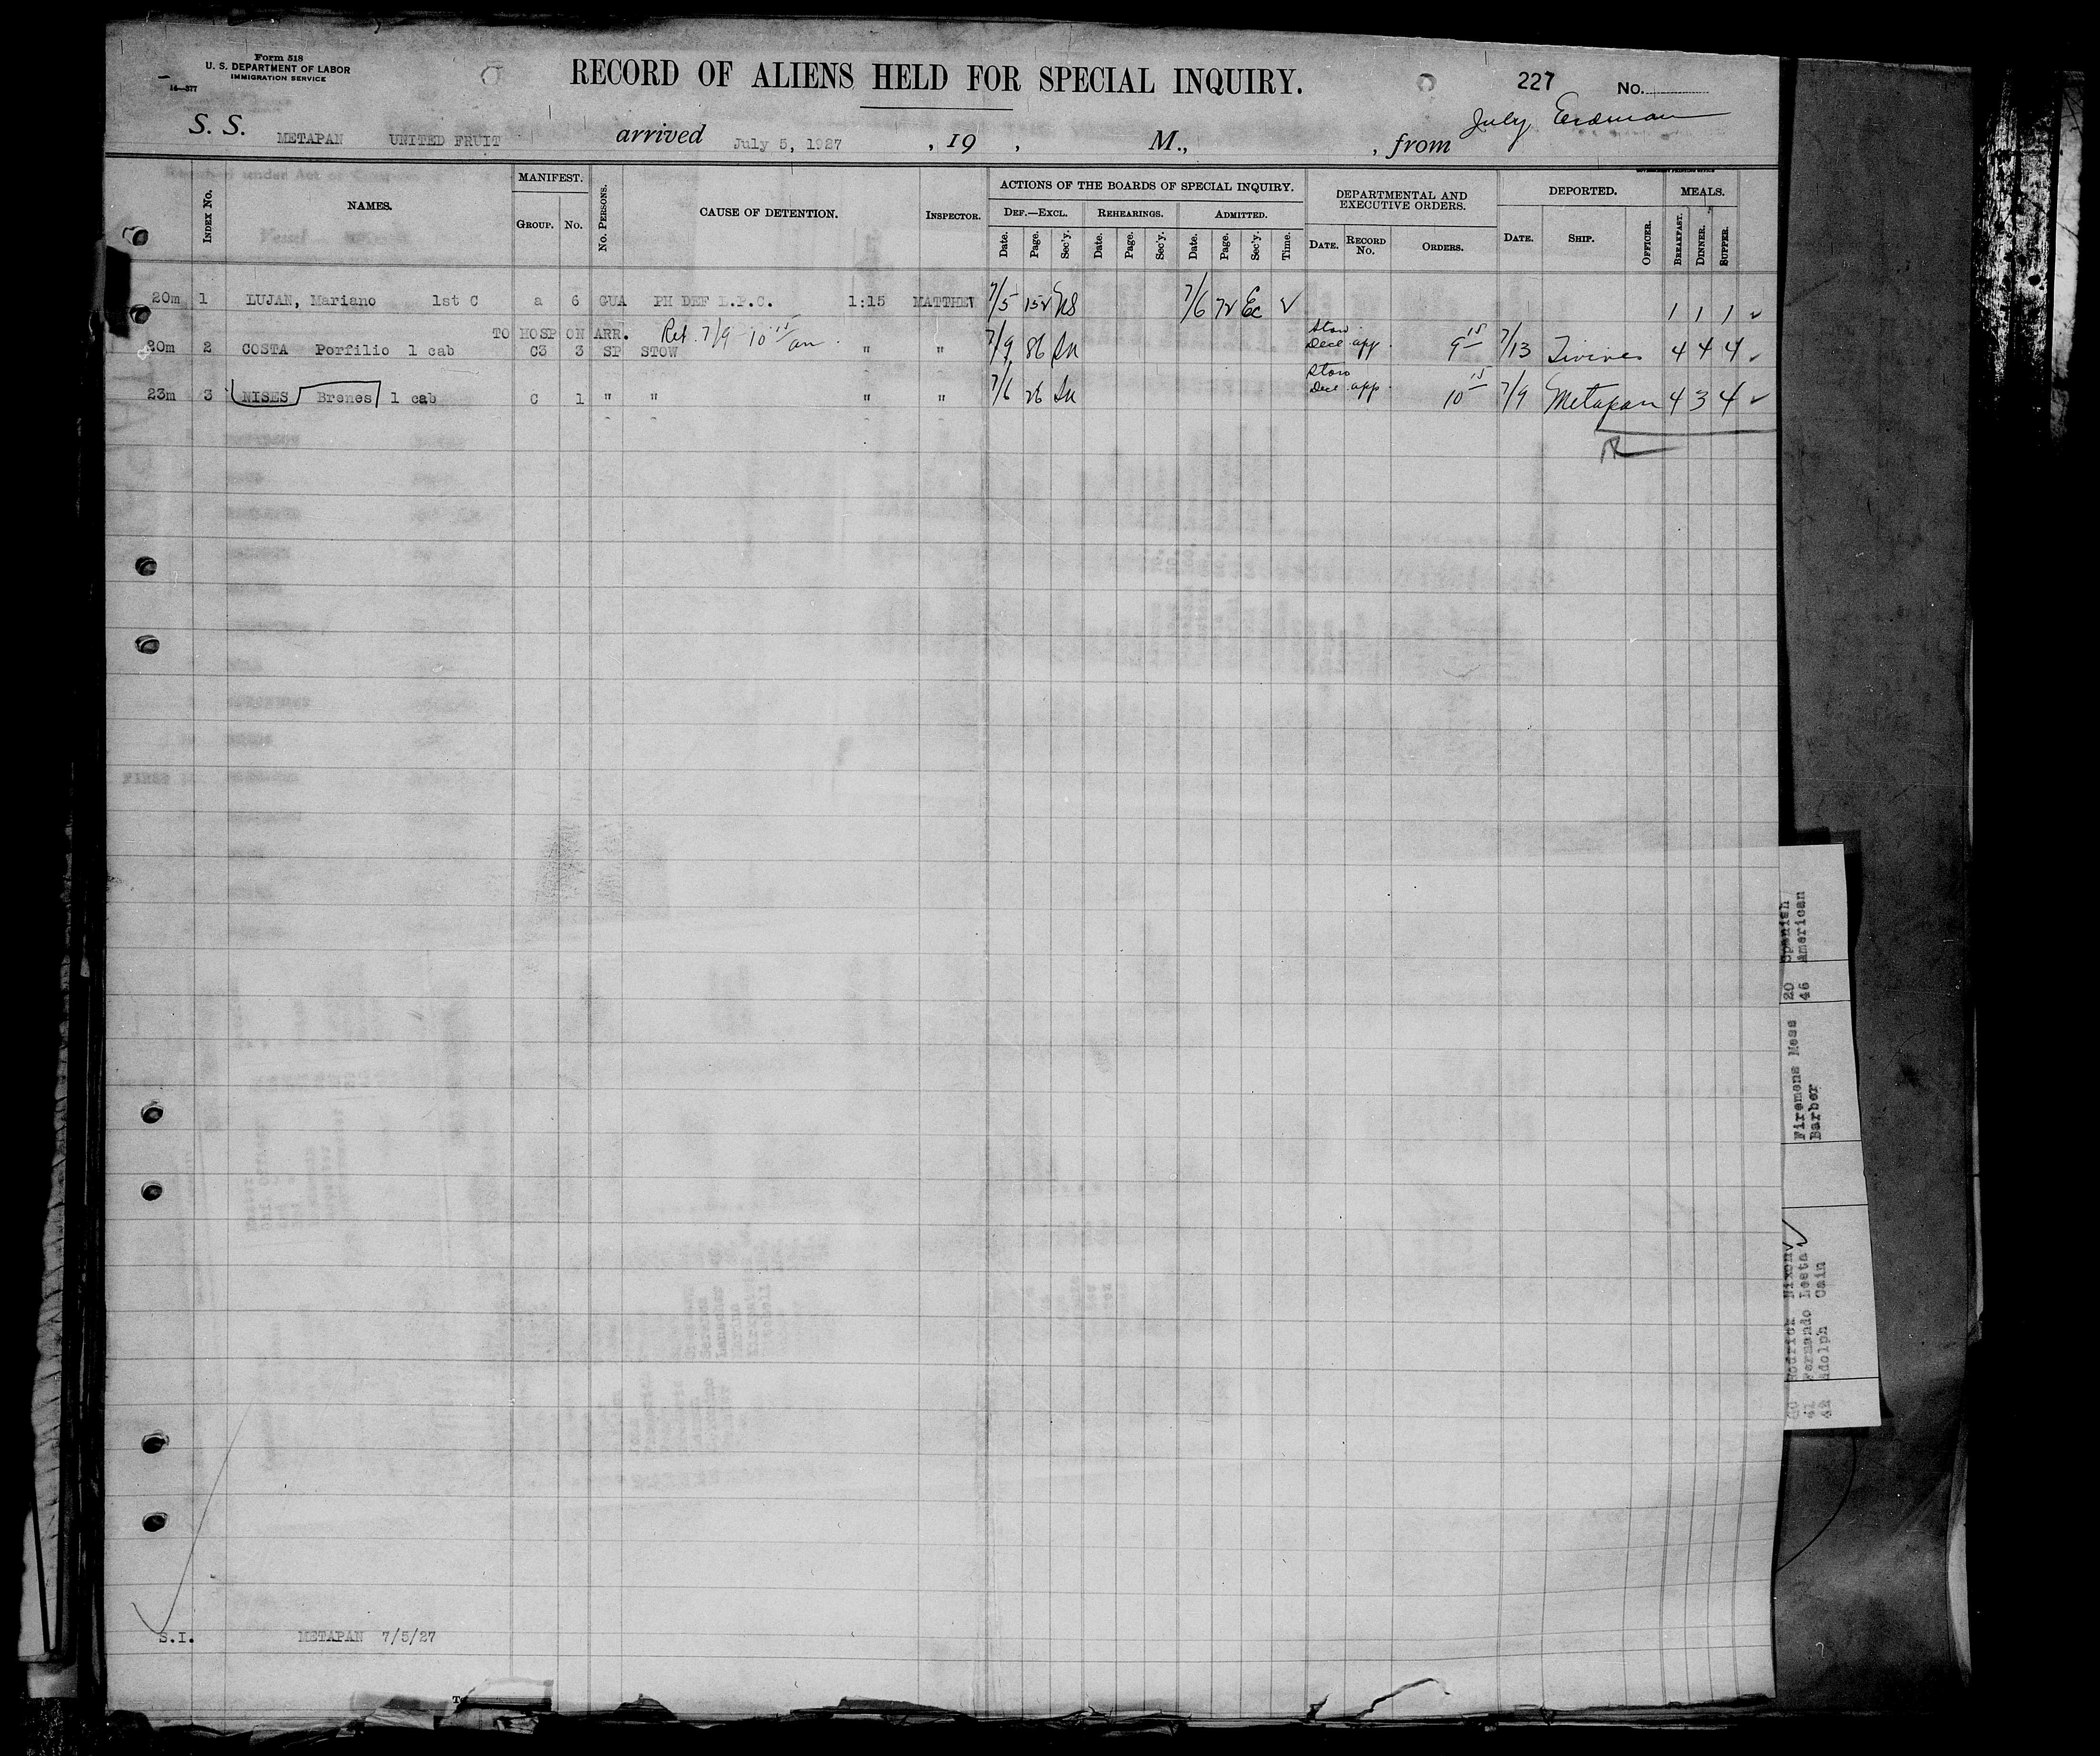 Form 518
U. S. DEPARTMENT OF LABOR
IMMIGRATION SERVICE
14—377
RECORD OF ALIENS HELD FOR SPECIAL INQUIRY.
227 No.
S. S. METAPAN UNITED FRUIT arrived July 5, 1927 , 19 , M., , from July
GOVERNMENT PRINTING OFFICE
INDEX No. NAMES. MANIFEST. GROUP. No. No. PERSONS. CAUSE OF DETENTION. INSPECTOR.
ACTIONS OF THE BOARDS OF SPECIAL INQUIRY.
DEF.—EXCL. REHEARINGS. ADMITTED.
Date. Page. Sec'y. Date. Page. Sec'y. Date. Page. Sec'y. Time.
DEPARTMENTAL AND EXECUTIVE ORDERS.
DATE. RECORD No. ORDERS.
DEPORTED.
DATE. SHIP. OFFICER.
MEALS.
BREAKFAST. DINNER. SUPPER.
20m 1 LUJAN, Mariano 1st C a 6 GUA PH DEF L.P.C. 1:15 MATTHEW 7/5 152 7/6 72 Ec 1 1 1
TO HOSP ON ARR. Ret. 7/9 10 15 am
20m 2 COSTA Porfilio 1 cab C3 3 SP STOW " " 7/9 86 Stow. Decl app. 9 15 7/13 Tivives 4 4 4
23m 3 NISES Brenes 1 cab C 1 " " " " 7/6 26 Stow Decl app. 10 15 7/9 Metapan 4 3 4
S.I. METAPAN 7/5/27
Spanish
American
20
46
Firemens Mess
Barber
Nixon
41 Fernando Leeta
42 Adolph Cain